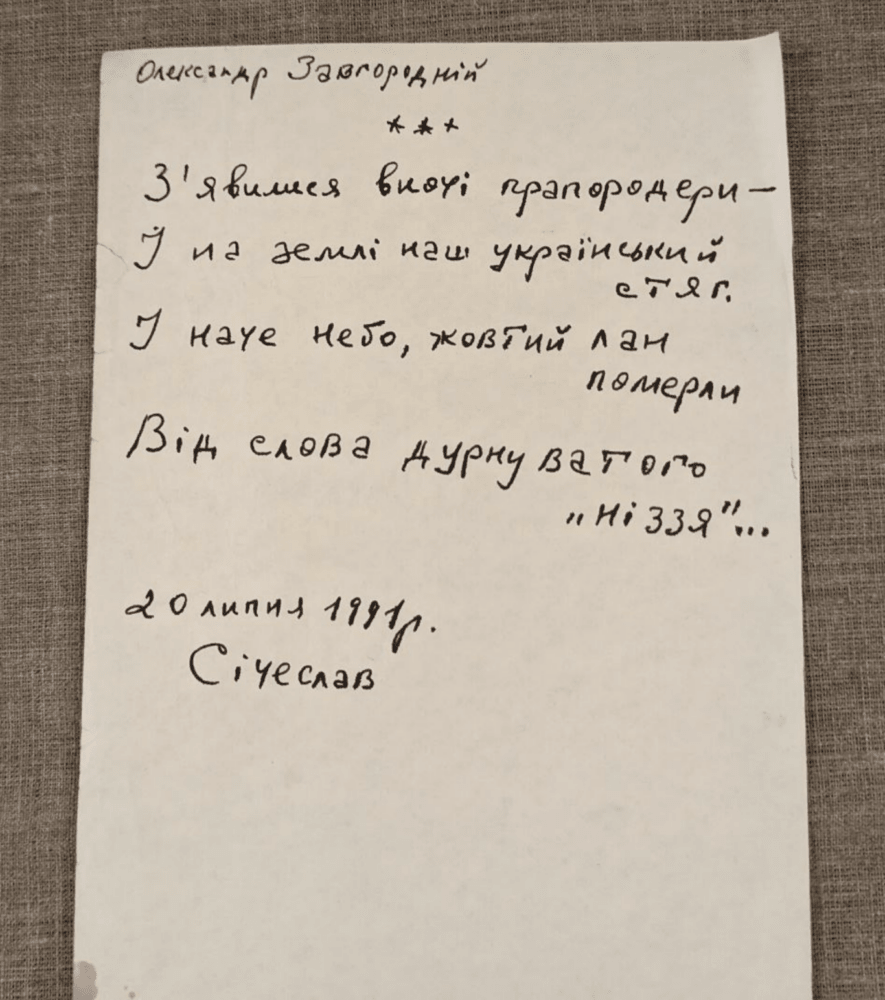 Олександр Завгородній
***
З'явилися вночі прапородери –
І на землі наш український
стяг.
І наче небо, жовтий лан
померли
Від слова дурнуватого
„ніззя"...
20 липня 1991р.
Січеслав